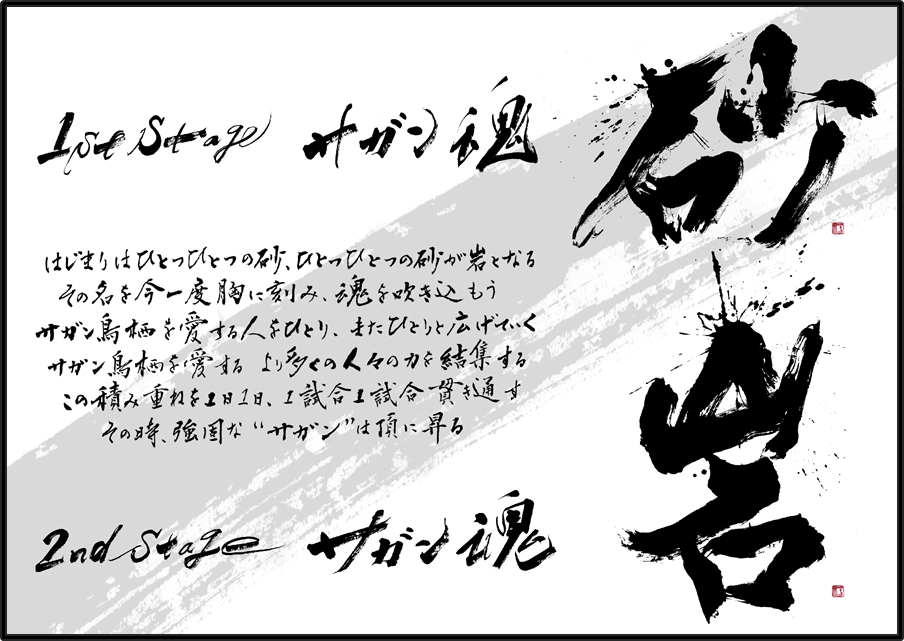 砂
岩
1st Stage サガン魂
はじまりはひとつひとつの砂、ひとつひとつの砂が岩となる
その名を今一度胸に刻み、魂を吹き込もう
サガン鳥栖を愛する人をひとり、またひとりと広げていく
サガン鳥栖を愛する より多くの人々の力を結集する
この積み重ねを1日1日、1試合1試合貫き通す
その時、強固な“サガン”は頂に昇る
2nd Stage サガン魂